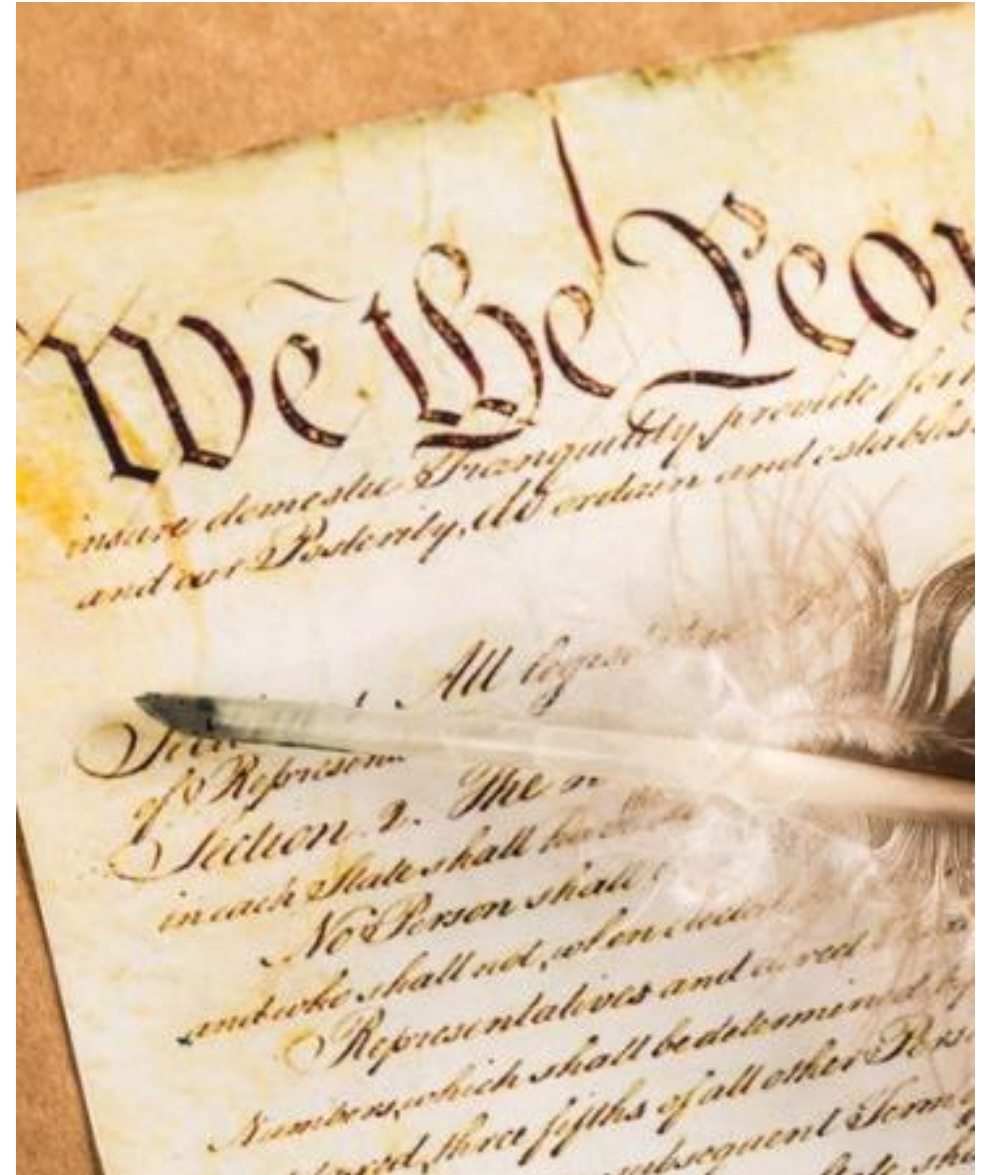 We the Peo
insure domestic Tranquility, provide for
and our Posterity, do ordain and establis
All legis
of Represen
Section. 2. The
in each State shall be
No Person shall
and who shall not, when elected
Representatives and
Numbers, which shall be determined by
three fifths of all other Perso
subsequent Term